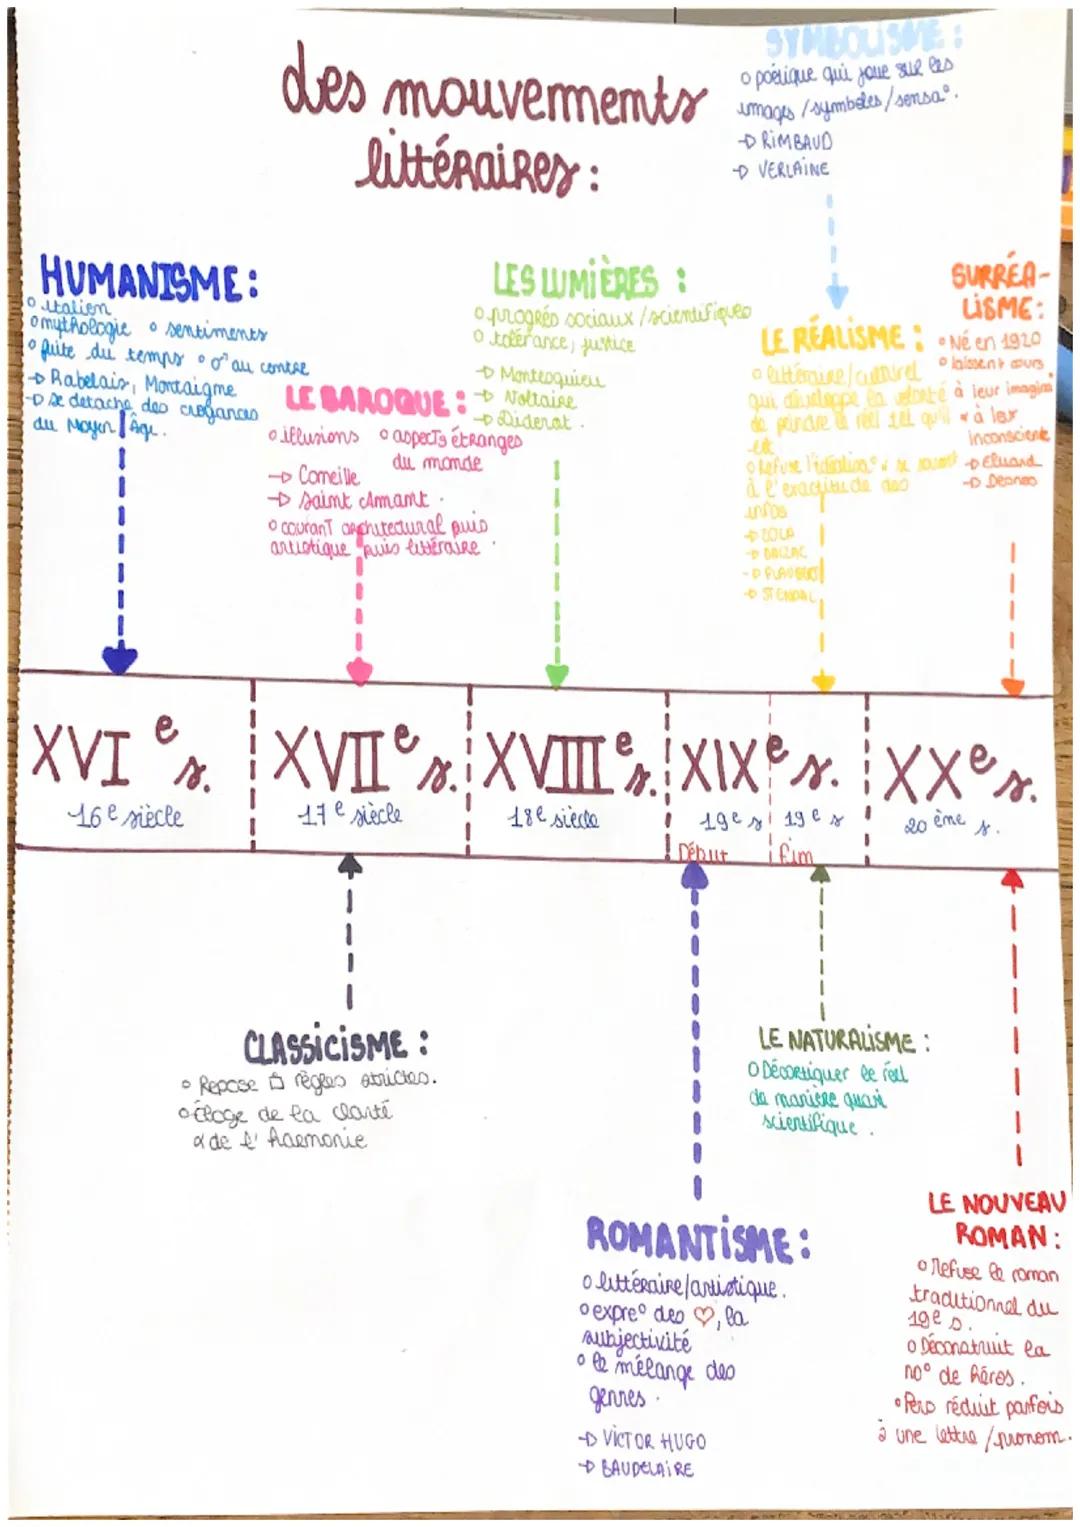 des mouvements
littéraires :
SYMBOLISME :
o poétique qui joue sur les
images / symboles / sensa°.
→ RIMBAUD
→ VERLAINE
HUMANISME :
o italien
o mythologie o sentiments
o fuite du temps o ♂ au centre
→ Rabelais, Montaigne
→ se detache des croyances
du Moyen Âge.
LE BAROQUE :
o illusions o aspects étranges
du monde
→ Corneille
→ Saint Amant.
o courant architectural puis
artistique puis littéraire.
LES LUMIÈRES :
o progrés sociaux / scientifiques
o tolérance, justice
→ Montesquieu
→ Voltaire
→ Diderot.
LE RÉALISME :
o littéraire / culturel
qui développe la volonté
de peindre le réel tel qu'il
est
o Refuse l'idéalisa° &
à l'exactitude des
infos
→ ZOLA
→ BALZAC
→ FLAUBERT
→ STENDAL
SURRÉA-
LISME :
o Né en 1920
o laissent cours
à leur imagina°
& à leur
inconscient
→ Eluard
→ Desnos
XVIe s.
16e siècle
XVIIe s.
17e siècle
XVIIIe s.
18e siècle
XIXe s.
19e s 19e s
Début fin
XXe s.
20 ème s.
CLASSICISME :
o Repose règles strictes.
o Éloge de la clarté
& de l'harmonie
LE NATURALISME :
o Décortiquer le réel
de manière quasi
scientifique.
ROMANTISME :
o littéraire/artistique.
o expre° des ♡, la
subjectivité
o le mélange des
genres.
→ VICTOR HUGO
→ BAUDELAIRE
LE NOUVEAU
ROMAN :
o Refuse le roman
traditionnel du
19e s.
o Déconstruit la
no° de héros.
o Perso réduit parfois
à une lettre / pronom.